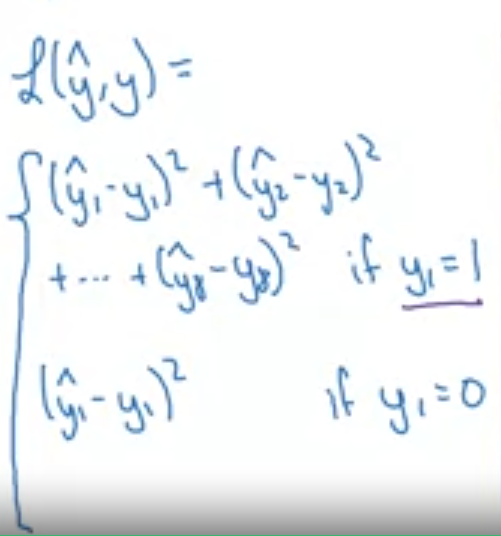 ℒ(ŷ,y)=
{(ŷ₁-y₁)²+(ŷ₂-y₂)²
+...+(ŷ₈-y₈)² if y₁=1
(ŷ₁-y₁)² if y₁=0